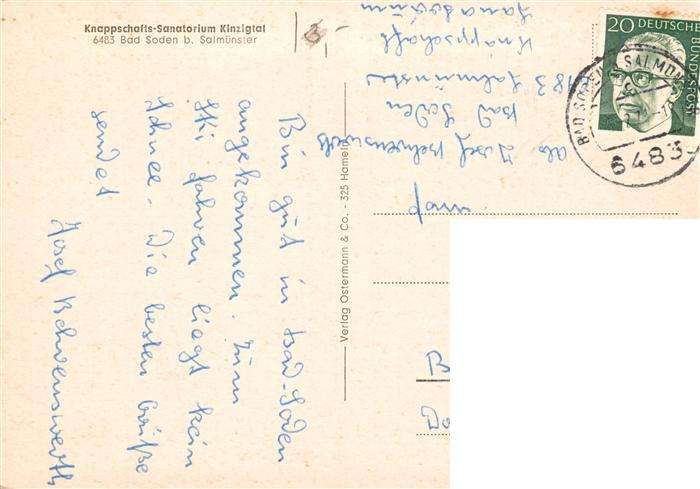 Knappschafts-Sanatorium Kinzigtal
6483 Bad Soden b. Salmünster
Bin gut in Bad-Soden
angekommen. Zum
Ski fahren liegt kein
Schnee. Die besten Grüße
sendet
Josef
Verlag Ostermann & Co. - 325 Hameln
Abs Josef
Bad Soden
6483 Salmünster
Knappschaft
Sanatorium
20 DEUTSCHE BUNDESPOST
BAD SODEN
SALMÜN
6483